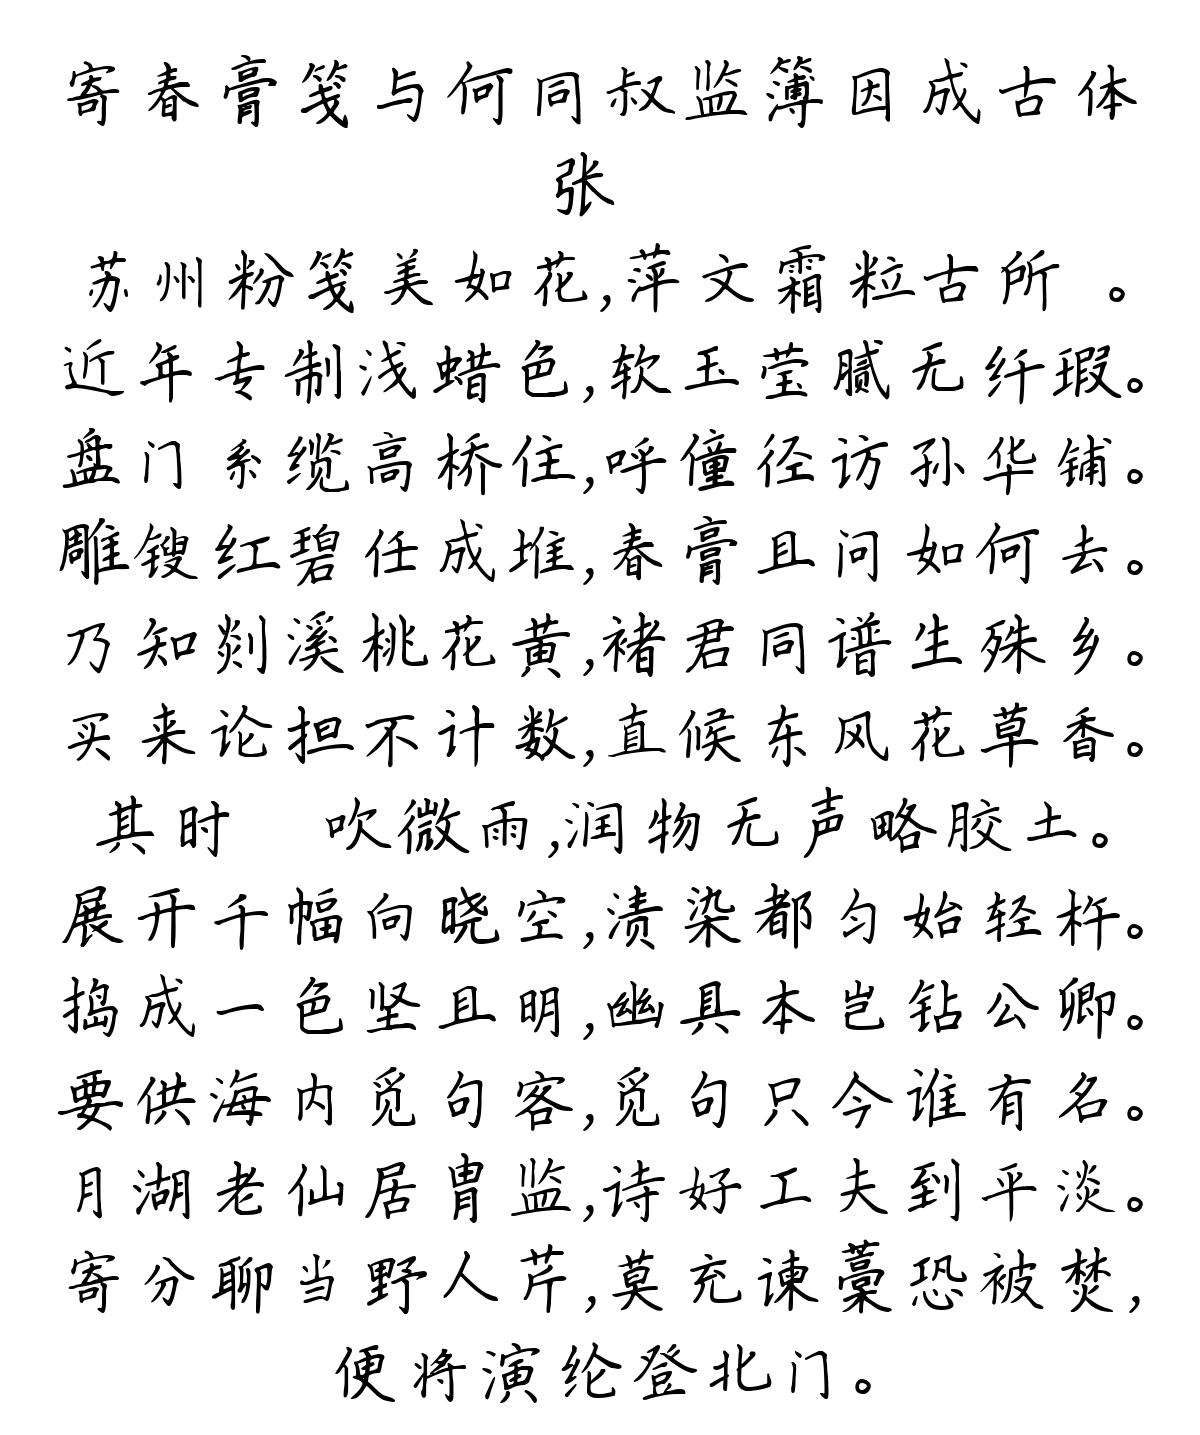 寄春膏笺与何同叔监簿因成古体
张
苏州粉笺美如花,萍文霜粒古所 。
近年专制浅蜡色,软玉莹腻无纤瑕。
盘门系缆高桥住,呼僮径访孙华铺。
雕锼红碧任成堆,春膏且问如何去。
乃知剡溪桃花黄,褚君同谱生殊乡。
买来论担不计数,直候东风花草香。
其时 吹微雨,润物无声略胶土。
展开千幅向晓空,渍染都匀始轻杵。
捣成一色坚且明,幽具本岂钻公卿。
要供海内觅句客,觅句只今谁有名。
月湖老仙居胄监,诗好工夫到平淡。
寄分聊当野人芹,莫充谏藁恐被焚,
便将演纶登北门。